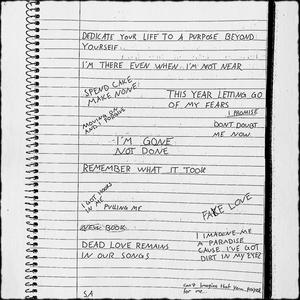 DEDICATE YOUR LIFE TO A PURPOSE BEYOND
YOURSELF.
I'M THERE EVEN WHEN I'M NOT NEAR
SPEND CAKE
MAKE NONE
THIS YEAR LETTING GO
OF MY FEARS
I PROMISE
MOVING ON
AND I FORGIVE
DONT DOUBT
ME NOW
I'M GONE
NOT DONE
REMEMBER WHAT IT TOOK
I GOT
IN ME
PULLING ME
FAKE LOVE
MUSIC BOOK
I IMAGINE ME
A PARADISE
CAUSE I'VE GOT
DIRT IN MY EYEZ
DEAD LOVE REMAINS
IN OUR SONGS
can't imagine that you prayed
for me..
SA